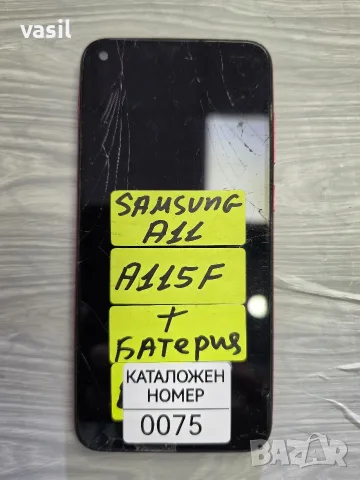 vasil
SAMSUNG
A11
A115F
+
БАТЕРИЯ
КАТАЛОЖЕН
НОМЕР
0075
BAZAR